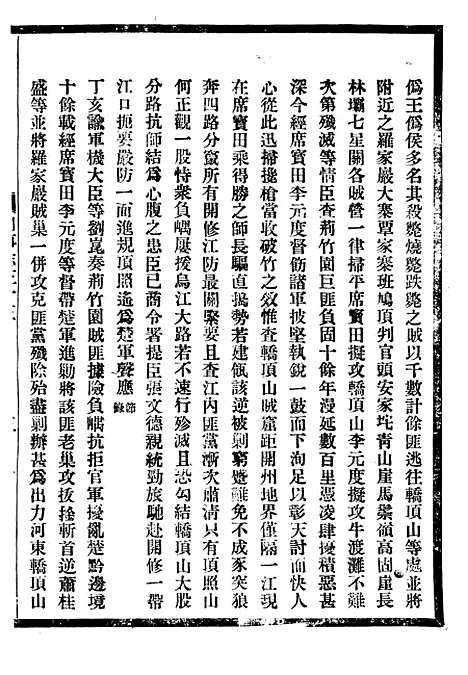 僞王僞侯多名其殺斃燒斃跌斃之賊以千數計餘匪逃往轎頂山等處並將
附近之羅家巖大寨覃家寨班鳩頂判官頭安家坨青山崖馬鬃嶺高固崖長
林壩七星關各賊營一律掃平席寶田擬攻轎頂山李元度擬攻牛渡灘不難
次第殲滅等情臣查荊竹園巨匪負固十餘年漫延數百里憑凌肆擾積惡甚
深今經席寶田李元度督飭諸軍披堅執銳一鼓而下洵足以彰天討而快人
心從此迅掃攙槍當收破竹之效惟查轎頂山賊窟距開州地界僅隔一江現
在席寶田乘得勝之師長驅直搗勢若建瓴該逆被剿窮蹙難免不成豕突狼
奔四路分竄所有開修江防最關緊要且查江內匪黨漸次肅清只有頂照山
何正觀一股恃衆負嵎屢援烏江大路若不速行殄滅且恐勾結轎頂山大股
分路抗師結爲心腹之患臣已商令署提臣張文德親統勁旅馳赴開修一帶
江口扼要嚴防一面進規頂照遙爲楚軍聲應節錄
丁亥諭軍機大臣等劉崑奏荊竹園賊匪據險負嵎抗拒官軍擾亂楚黔邊境
十餘載經席寶田李元度等督帶楚軍進剿將該匪老巢攻拔擒斬首逆蕭桂
盛等並將羅家巖賊巢一併攻克匪黨殲除殆盡剿辦甚爲出力河東轎頂山